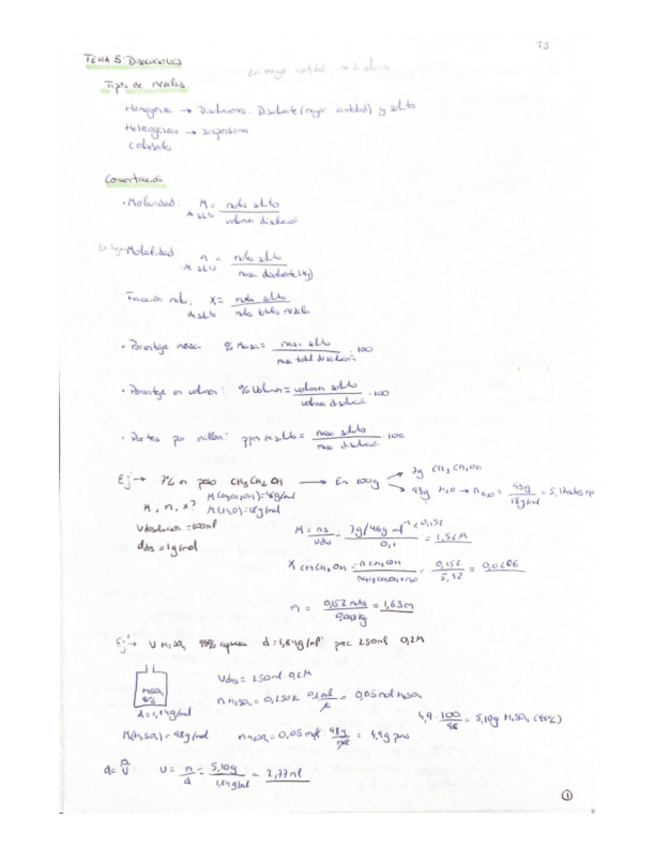 T5
TEMA 5: Disoluciones
En mayor cantidad
Tipos de mezclas
Homogénea → Disoluciones. Disolvente (mayor cantidad) y soluto
Heterogénea → suspensiones
Coloidales
Concentración
· Molaridad: M = moles soluto / volumen disolución
de soluto
Molalidad: n = moles soluto / masa disolvente (kg)
de soluto
Fracción molar: X = moles soluto / moles totales mezcla
de soluto
· Porcentaje masa % Masa = masa soluto / masa total disolución · 100
· Porcentaje en volumen: % Volumen = volumen soluto / volumen disolución · 100
· Partes por millón: ppm de soluto = masa soluto / masa disolución · 100
Ej → 7% en peso CH3CH2OH → En 100g
7g CH3CH2OH
93g H2O → n H2O = 93g / 18g/mol = 5,17 moles
M, n, x?
M(CH3CH2OH) = 46g/mol
M(H2O) = 18g/mol
V disolución = 100ml
d dis = 1g/ml
M = ns / Vdis = 7g/46g mol-1 / 0,1 = 1,52M
X CH3CH2OH = = 0,152 / 5,32 = 0,0286
n = 0,152 moles / 0,093kg = 1,63m
Ej → V H2SO4 98% riqueza d = 1,84g/ml para 250ml 0,2M
H2SO4
98%
d = 1,84g/ml
Vdis = 250ml 0,2M
n H2SO4 = 0,250l · 0,2mol / l = 0,05mol H2SO4
4,9 · 100 / 98 = 5,10g H2SO4 (98%)
M(H2SO4) = 98g/mol
m H2SO4 = 0,05mol · 98g / mol = 4,9g puros
d = m / V
V = m / d = 5,10g / 1,84g/ml = 2,77ml
1